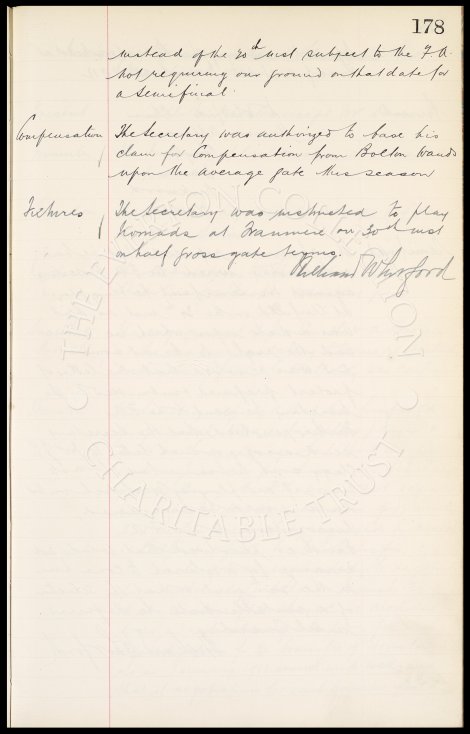 178
instead of the 20th inst subject to the F.A.
not requiring our ground on that date for
a Semifinal.
Compensation The Secretary was authorized to base his
claim for Compensation from Bolton Wands
upon the average gate this season
Fixtures The Secretary was instructed to play
Nomads at Tranmere on 30th inst
on half gross gate terms.
William Whitford
THE EVERTON COLLECTION
CHARITABLE TRUST